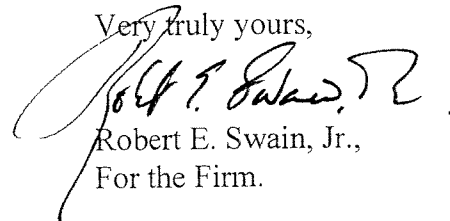 Very truly yours,
Robert E. Swain, Jr.
Robert E. Swain, Jr.,
For the Firm.